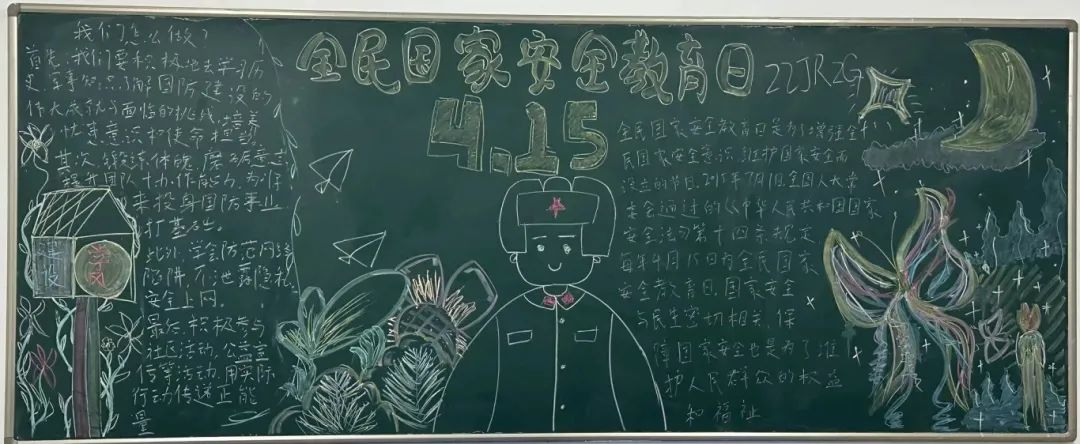 我们怎么做？
首先，我们要积极地去学习历
史、军事知识，了解国防建设的
伟大成就与面临的挑战，培养
忧患意识和使命担当。
其次，锻炼体魄，磨砺意志，
提升团队协作能力，为保
来投身国防事业
打基础。
此外，学会防范网络
陷阱，不泄露隐私，
安全上网。
最后，积极参与
社区活动，公益宣
传等活动，用实际
行动传递正能
量
建设
学风
全民国家安全教育日 22JRZG
4.15
全民国家安全教育日是为了增强全
民国家安全意识，维护国家安全而
设立的节日。2015年7月1日全国人大常
委会通过的《中华人民共和国国家
安全法》第十四条规定
每年4月15日为全民国家
安全教育日。国家安全
与民生密切相关，保
障国家安全也是为了维
护人民群众的权益
和福祉